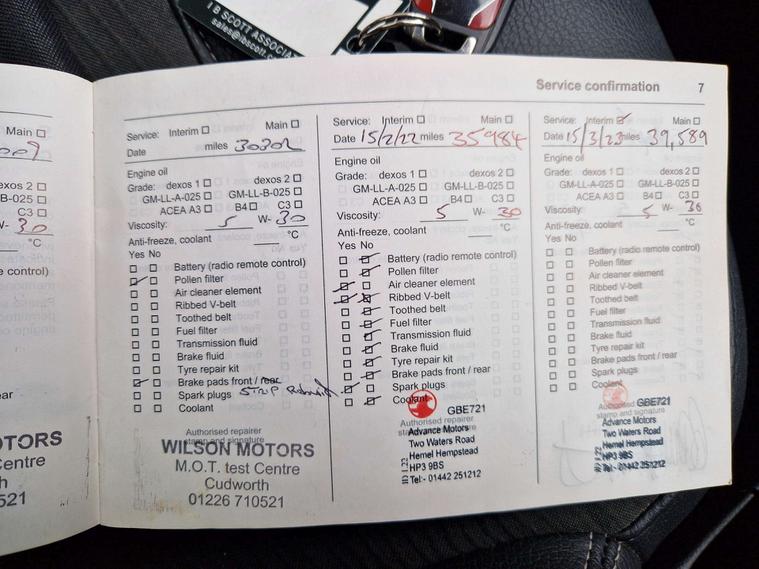 I B SCOTT ASSOCIA
sales@ibscott.c
Service confirmation 7
Main ☐
dexos 2 ☐
B-025 ☐
C3 ☐
W- 30
°C
control)
ear
OTORS
521
Service: Interim ☐ Main ☐
Date miles 30302
Engine oil
Grade: dexos 1 ☐ dexos 2 ☐
GM-LL-A-025 ☐ GM-LL-B-025 ☐
ACEA A3 ☐ B4 ☐ C3 ☐
Viscosity: 5 W- 30
Anti-freeze, coolant °C
Yes No
Battery (radio remote control)
Pollen filter
Air cleaner element
Ribbed V-belt
Toothed belt
Fuel filter
Transmission fluid
Brake fluid
Tyre repair kit
Brake pads front / rear
Spark plugs
Coolant
Authorised repairer
stamp and signature
WILSON MOTORS
M.O.T. test Centre
Cudworth
01226 710521
Service: Interim ☐ Main ☐
Date 15/2/22 miles 35984
Engine oil
Grade: dexos 1 ☐ dexos 2 ☐
GM-LL-A-025 ☐ GM-LL-B-025 ☐
ACEA A3 ☐ B4 ☐ C3 ☐
Viscosity: 5 W- 30
Anti-freeze, coolant °C
Yes No
Battery (radio remote control)
Pollen filter
Air cleaner element
Ribbed V-belt
Toothed belt
Fuel filter
Transmission fluid
Brake fluid
Tyre repair kit
Brake pads front / rear
Spark plugs
Coolant
GBE721
Authorised repairer
Advance Motors
Two Waters Road
Hemel Hempstead
HP3 9BS
Tel:- 01442 251212
Service: Interim ☑ Main ☐
Date 15/3/23 miles 39,589
Engine oil
Grade: dexos 1 ☐ dexos 2 ☐
GM-LL-A-025 ☐ GM-LL-B-025 ☐
ACEA A3 ☐ B4 ☐ C3 ☐
Viscosity: 5 W- 30
Anti-freeze, coolant °C
Yes No
Battery (radio remote control)
Pollen filter
Air cleaner element
Ribbed V-belt
Toothed belt
Fuel filter
Transmission fluid
Brake fluid
Tyre repair kit
Brake pads front / rear
Spark plugs
Coolant
GBE721
Authorised
stamp and signature
Advance Motors
Two Waters Road
Hemel Hempstead
HP3 9BS
Tel:- 01442 251212